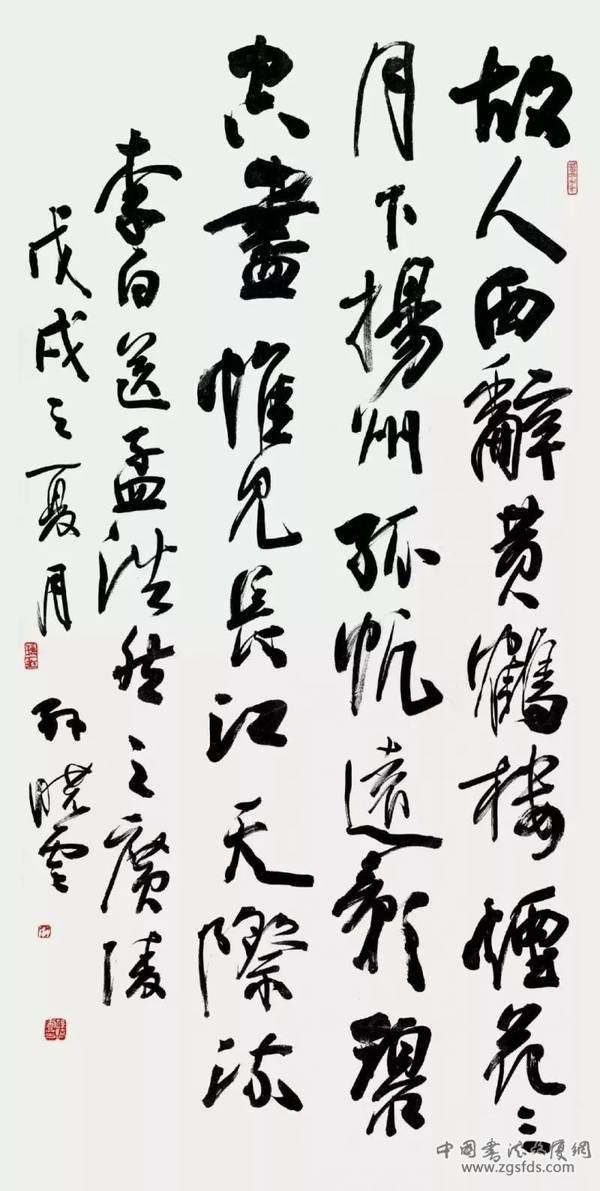 故人西辭黄鶴樓煙花三
月下揚州孤帆遠影碧
空盡惟見長江天際流
李白送孟浩然之廣陵
戊戌之夏月 孫曉雲
中國書法大厦網
www.zgsfds.com